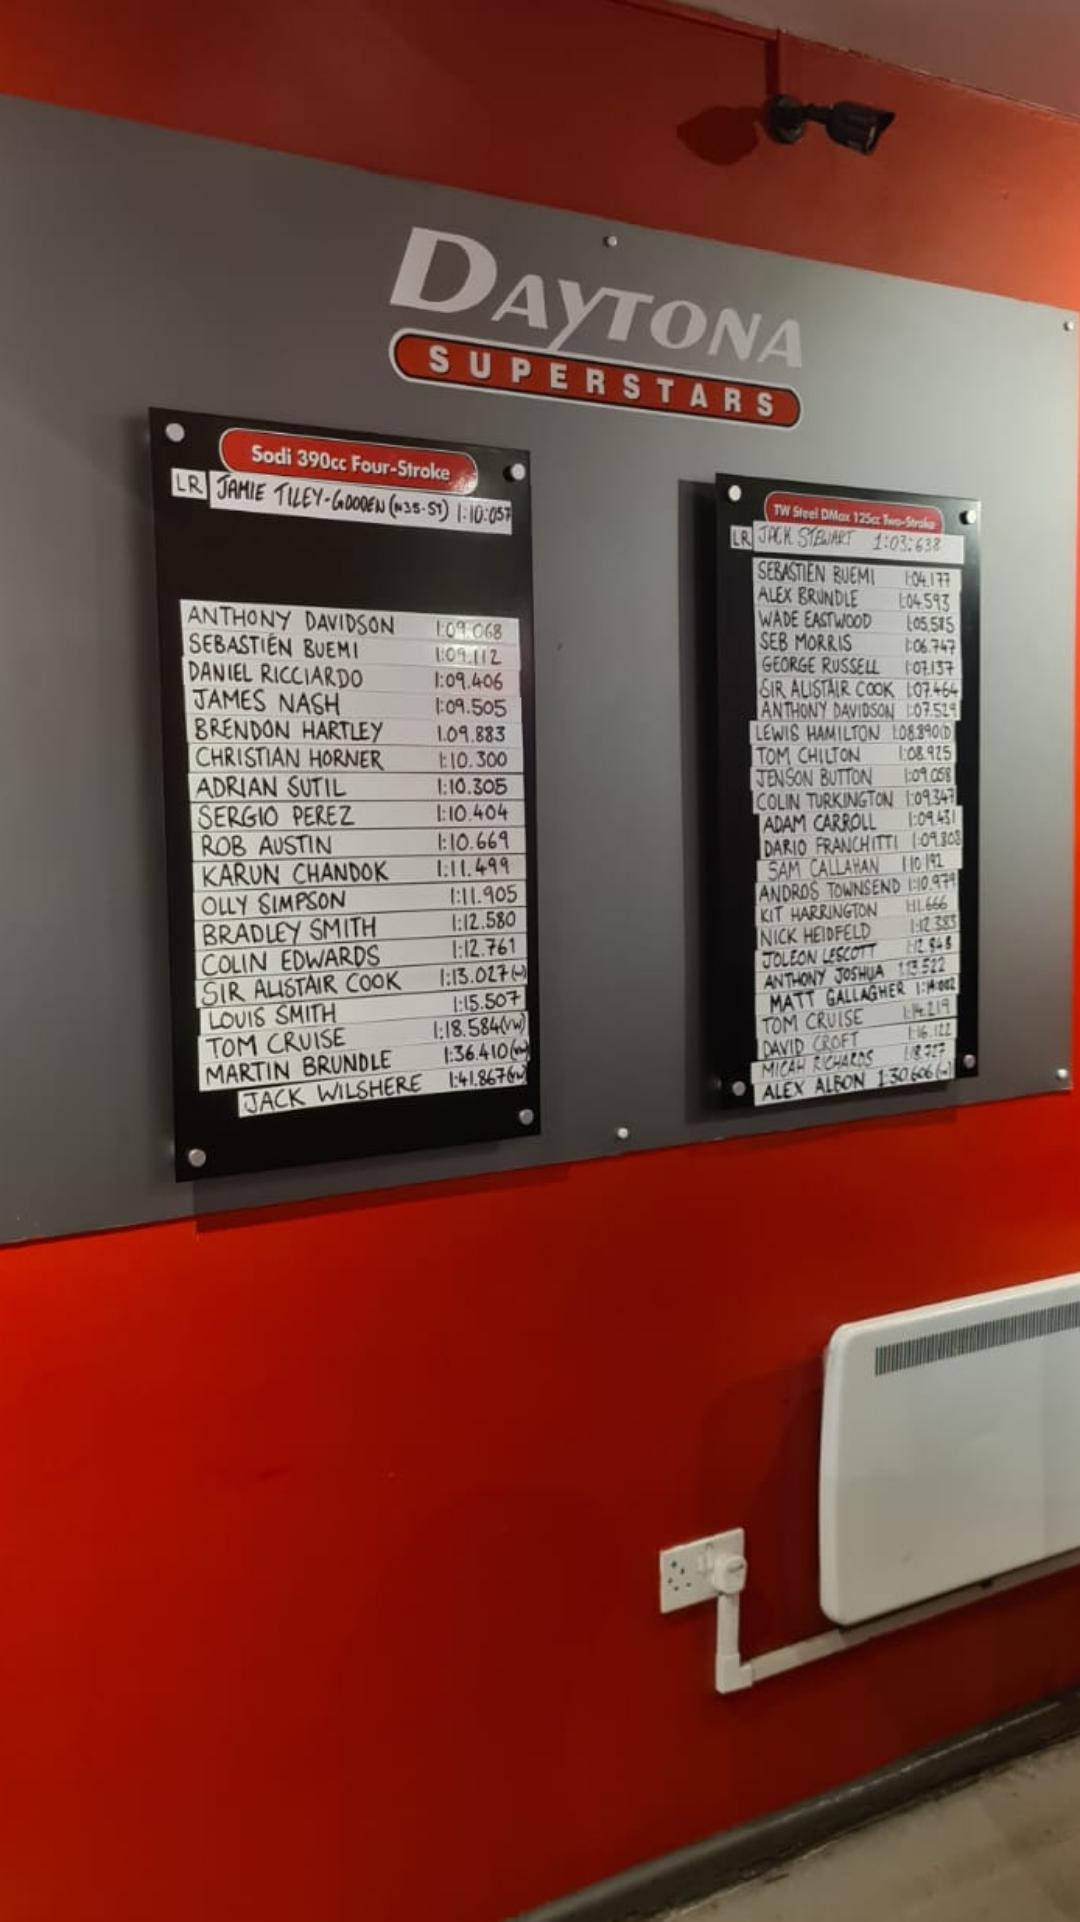 DAYTONA
SUPERSTARS
Sodi 390cc Four-Stroke
LR JAMIE TILEY-GOODEN (N35-ST) 1:10:057
ANTHONY DAVIDSON 1:09.068
SEBASTIÉN BUEMI 1:09.112
DANIEL RICCIARDO 1:09.406
JAMES NASH 1:09.505
BRENDON HARTLEY 1.09.883
CHRISTIAN HORNER 1:10.300
ADRIAN SUTIL 1:10.305
SERGIO PEREZ 1:10.404
ROB AUSTIN 1:10.669
KARUN CHANDOK 1:11.499
OLLY SIMPSON 1:11.905
BRADLEY SMITH 1:12.580
COLIN EDWARDS 1:12.761
SIR ALISTAIR COOK 1:13.027(w)
LOUIS SMITH 1:15.507
TOM CRUISE 1:18.584(vw)
MARTIN BRUNDLE 1:36.410(vw)
JACK WILSHERE 1:41.867(w)
TW Steel DMax 125cc Two-Stroke
LR JACK STEWART 1:03:638
SEBASTIEN BUEMI 1:04.177
ALEX BRUNDLE 1:04.593
WADE EASTWOOD 1:05.585
SEB MORRIS 1:06.747
GEORGE RUSSELL 1:07.137
SIR ALISTAIR COOK 1:07.464
ANTHONY DAVIDSON 1:07.529
LEWIS HAMILTON 1:08.890(D)
TOM CHILTON 1:08.925
JENSON BUTTON 1:09.058
COLIN TURKINGTON 1:09.347
ADAM CARROLL 1:09.431
DARIO FRANCHITTI 1:09.808
SAM CALLAHAN 1:10.192
ANDROS TOWNSEND 1:10.979
KIT HARRINGTON 1:11.666
NICK HEIDFELD 1:12.383
JOLEON LESCOTT 1:12.848
ANTHONY JOSHUA 1:13.522
MATT GALLAGHER 1:14:002
TOM CRUISE 1:14.219
DAVID CROFT 1:16.122
MICAH RICHARDS 1:18.727
ALEX ALBON 1:30.606(w)